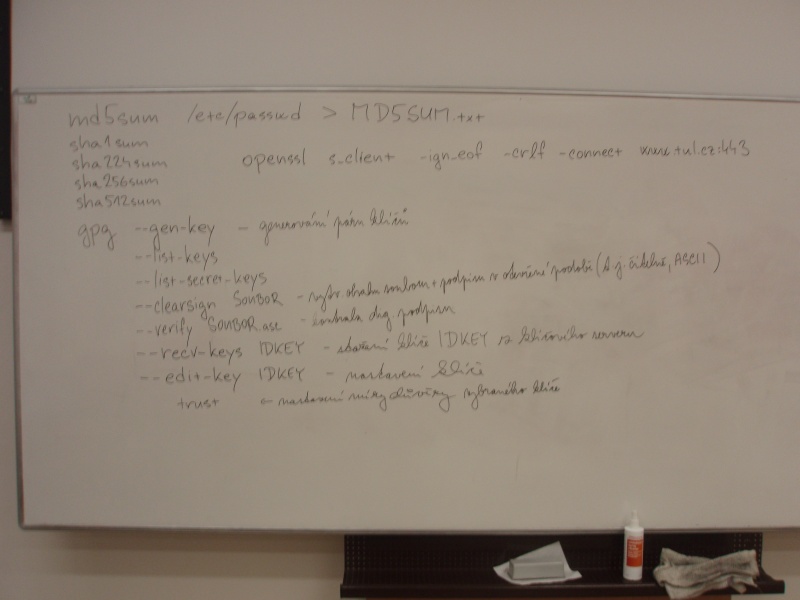 md5sum /etc/passwd > MD5SUM.txt
sha1sum
sha224sum openssl s_client -ign_eof -crlf -connect www.tul.cz:443
sha256sum
sha512sum
gpg --gen-key - generování páru klíčů
--list-keys
--list-secret-keys
--clearsign SOUBOR - výtv. obsahu souboru + podpisu v otevřené podobě (t.j. čitelné, ASCII)
--verify SOUBOR.asc - kontrola dig. podpisu
--recv-keys IDKEY - stažení klíče IDKEY z klíčového serveru
--edit-key IDKEY - nastavení klíče
trust - nastavení míry důvěry vybraného klíče